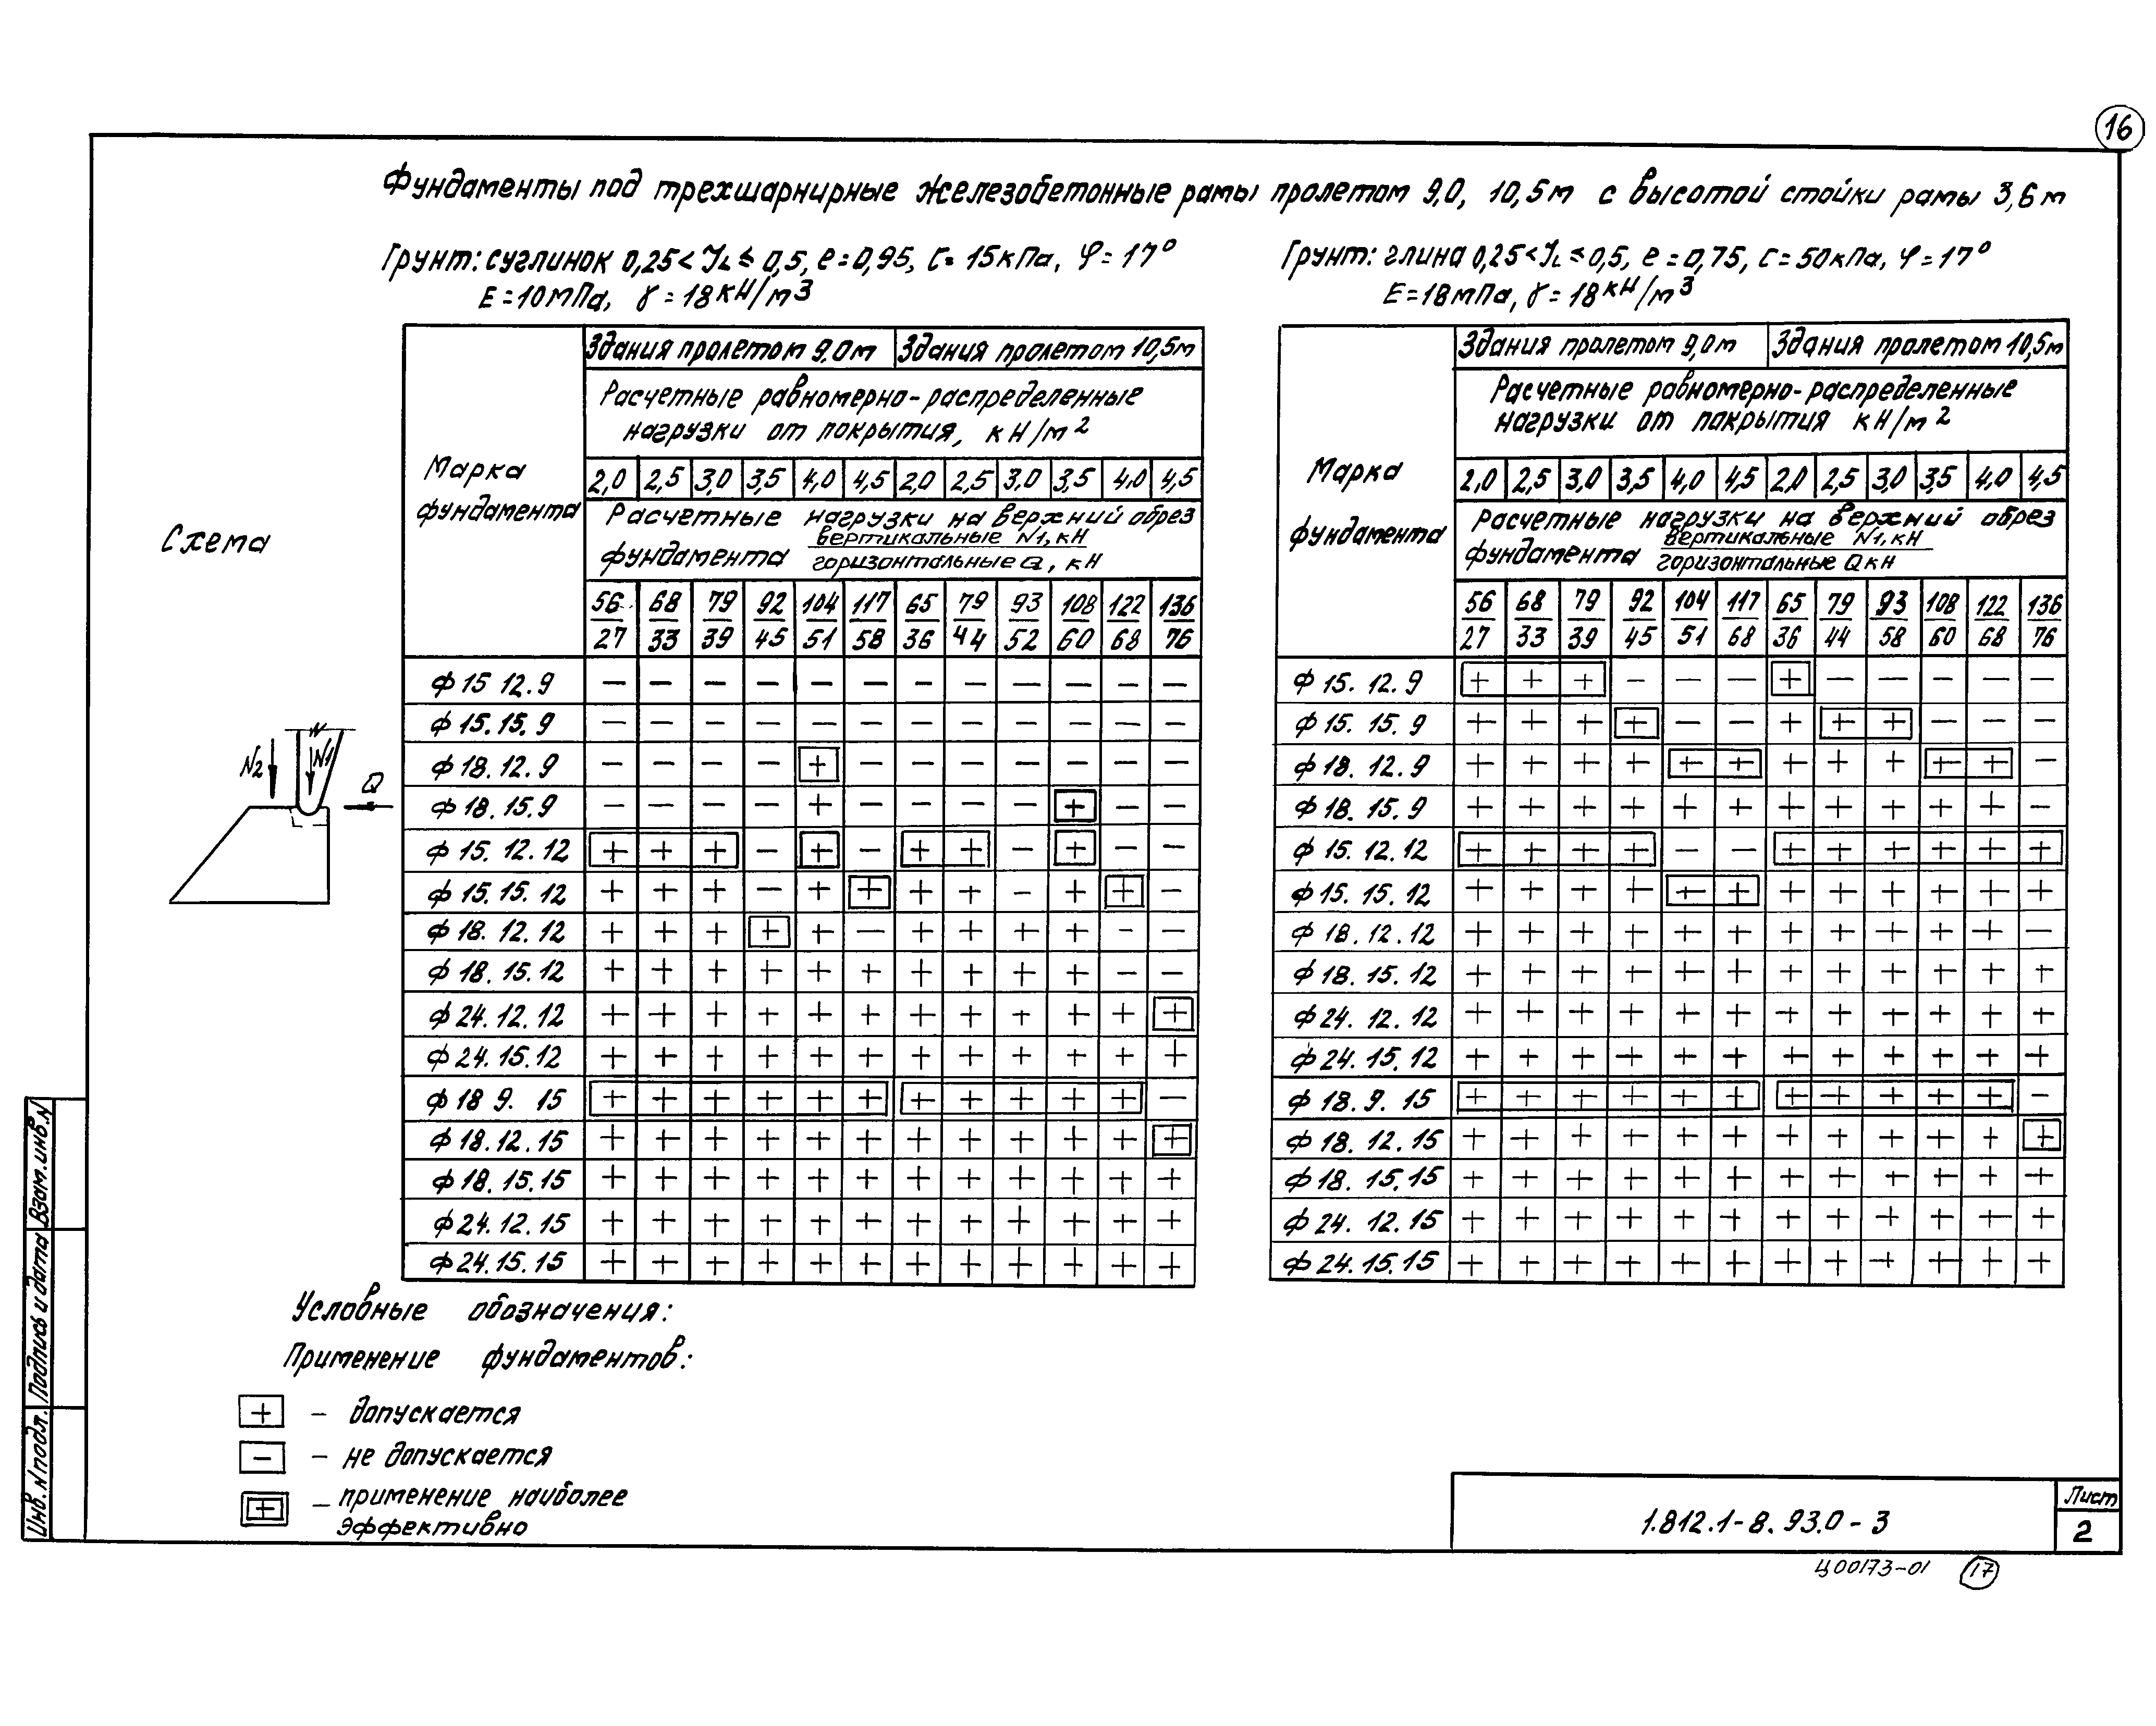 16
Фундаменты под трехшарнирные железобетонные рамы пролетом 9,0, 10,5м с высотой стойки рамы 3,6м
Грунт: суглинок 0,25 < JL ≤ 0,5, e = 0,95, C = 15кПа, φ = 17°
E = 10мПа, γ = 18кН/м3
Марка фундамента
Здания пролетом 9,0м Здания пролетом 10,5м
Расчетные равномерно-распределенные
нагрузки от покрытия, кН/м2
2,0 2,5 3,0 3,5 4,0 4,5 2,0 2,5 3,0 3,5 4,0 4,5
Расчетные нагрузки на верхний обрез
фундамента вертикальные N1, кН
горизонтальные Q, кН
56 68 79 92 104 117 65 79 93 108 122 136
27 33 39 45 51 58 36 44 52 60 68 76
Ф 15 12.9 − − − − − − − − − − − −
Ф 15.15.9 − − − − − − − − − − − −
Ф 18.12.9 − − − − + − − − − − − −
Ф 18.15.9 − − − − + − − − − + − −
Ф 15.12.12 + + + − + − + + − + − −
Ф 15.15.12 + + + − + + + + − + + −
Ф 18.12.12 + + + + + − + + + + − −
Ф 18.15.12 + + + + + + + + + + − −
Ф 24.12.12 + + + + + + + + + + + +
Ф 24.15.12 + + + + + + + + + + + +
Ф 18 9. 15 + + + + + + + + + + + −
Ф 18.12.15 + + + + + + + + + + + +
Ф 18.15.15 + + + + + + + + + + + +
Ф 24.12.15 + + + + + + + + + + + +
Ф 24.15.15 + + + + + + + + + + + +
Грунт: глина 0,25 < JL ≤ 0,5, e = 0,75, C = 50кПа, φ = 17°
E = 18мПа, γ = 18кН/м3
Марка фундамента
Здания пролетом 9,0м Здания пролетом 10,5м
Расчетные равномерно-распределенные
нагрузки от покрытия кН/м2
2,0 2,5 3,0 3,5 4,0 4,5 2,0 2,5 3,0 3,5 4,0 4,5
Расчетные нагрузки на верхний обрез
фундамента вертикальные N1, кН
горизонтальные Q кН
56 68 79 92 104 117 65 79 93 108 122 136
27 33 39 45 51 68 36 44 58 60 68 76
Ф 15. 12. 9 + + + − − − + − − − − −
Ф 15. 15. 9 + + + + − − + + + − − −
Ф 18. 12. 9 + + + + + + + + + + + −
Ф 18. 15. 9 + + + + + + + + + + + −
Ф 15. 12. 12 + + + + − − + + + + + +
Ф 15. 15. 12 + + + + + + + + + + + +
Ф 18. 12. 12 + + + + + + + + + + + −
Ф 18. 15. 12 + + + + + + + + + + + +
Ф 24. 12. 12 + + + + + + + + + + + +
Ф 24. 15. 12 + + + + + + + + + + + +
Ф 18. 9. 15 + + + + + + + + + + + −
Ф 18. 12. 15 + + + + + + + + + + + +
Ф 18. 15. 15 + + + + + + + + + + + +
Ф 24. 12. 15 + + + + + + + + + + + +
Ф 24. 15. 15 + + + + + + + + + + + +
Схема
N2 N1 Q
Условные обозначения:
Применение фундаментов:
+ – допускается
− – не допускается
+ – применение наиболее
эффективно
Взам. инв. N
Подпись и дата
Инв. N подл.
1.812.1-8.93.0-3
Лист
2
Ц00173-01 17